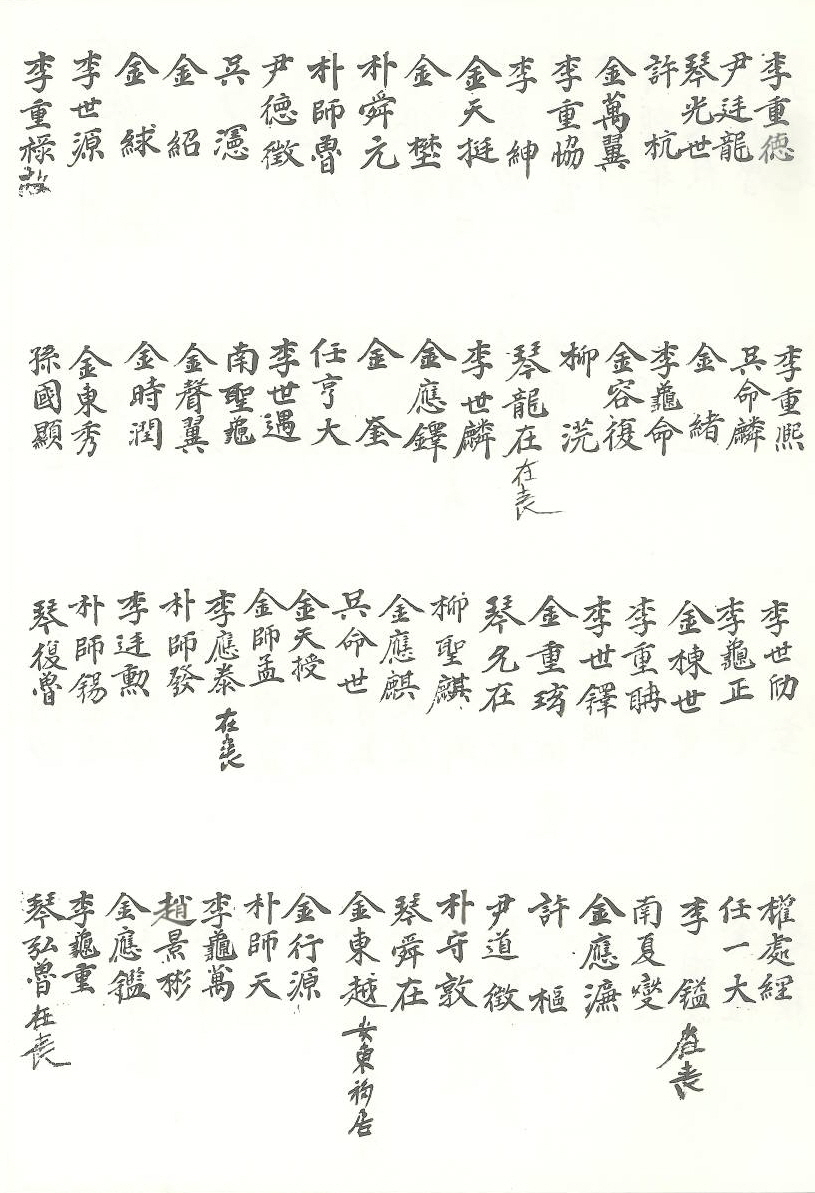 李重德
尹廷龍
琴光世
許杭
金萬翼
李重協
李紳
金天挺
金楙
朴舜元
朴師魯
尹德徵
吳
金紹
金絿
李世源
李重祿
李重熙
吳命麟
金緒
李龜命
金容復
柳洸
琴龍在 在喪
李世麟
金應鐸
金崟
任亨大
李世遇
南聖龜
金聲翼
金時潤
金東秀
孫國顯
李世
李龜正
金棟世
李重聃
李世鐸
金重玹
琴允在
柳聖麒
金應麒
吳命世
金天授
金師孟
李應泰 在喪
朴師發
李廷勳
朴師錫
琴復魯
權處經
任一大
李鎰 在喪
南夏燮
金應濂
許樞
尹道徵
朴守敦
琴舜在
金東越 安東移居
金行源
朴師天
李龜萬
趙景彬
金應鑑
李龜重
琴弘魯 在喪